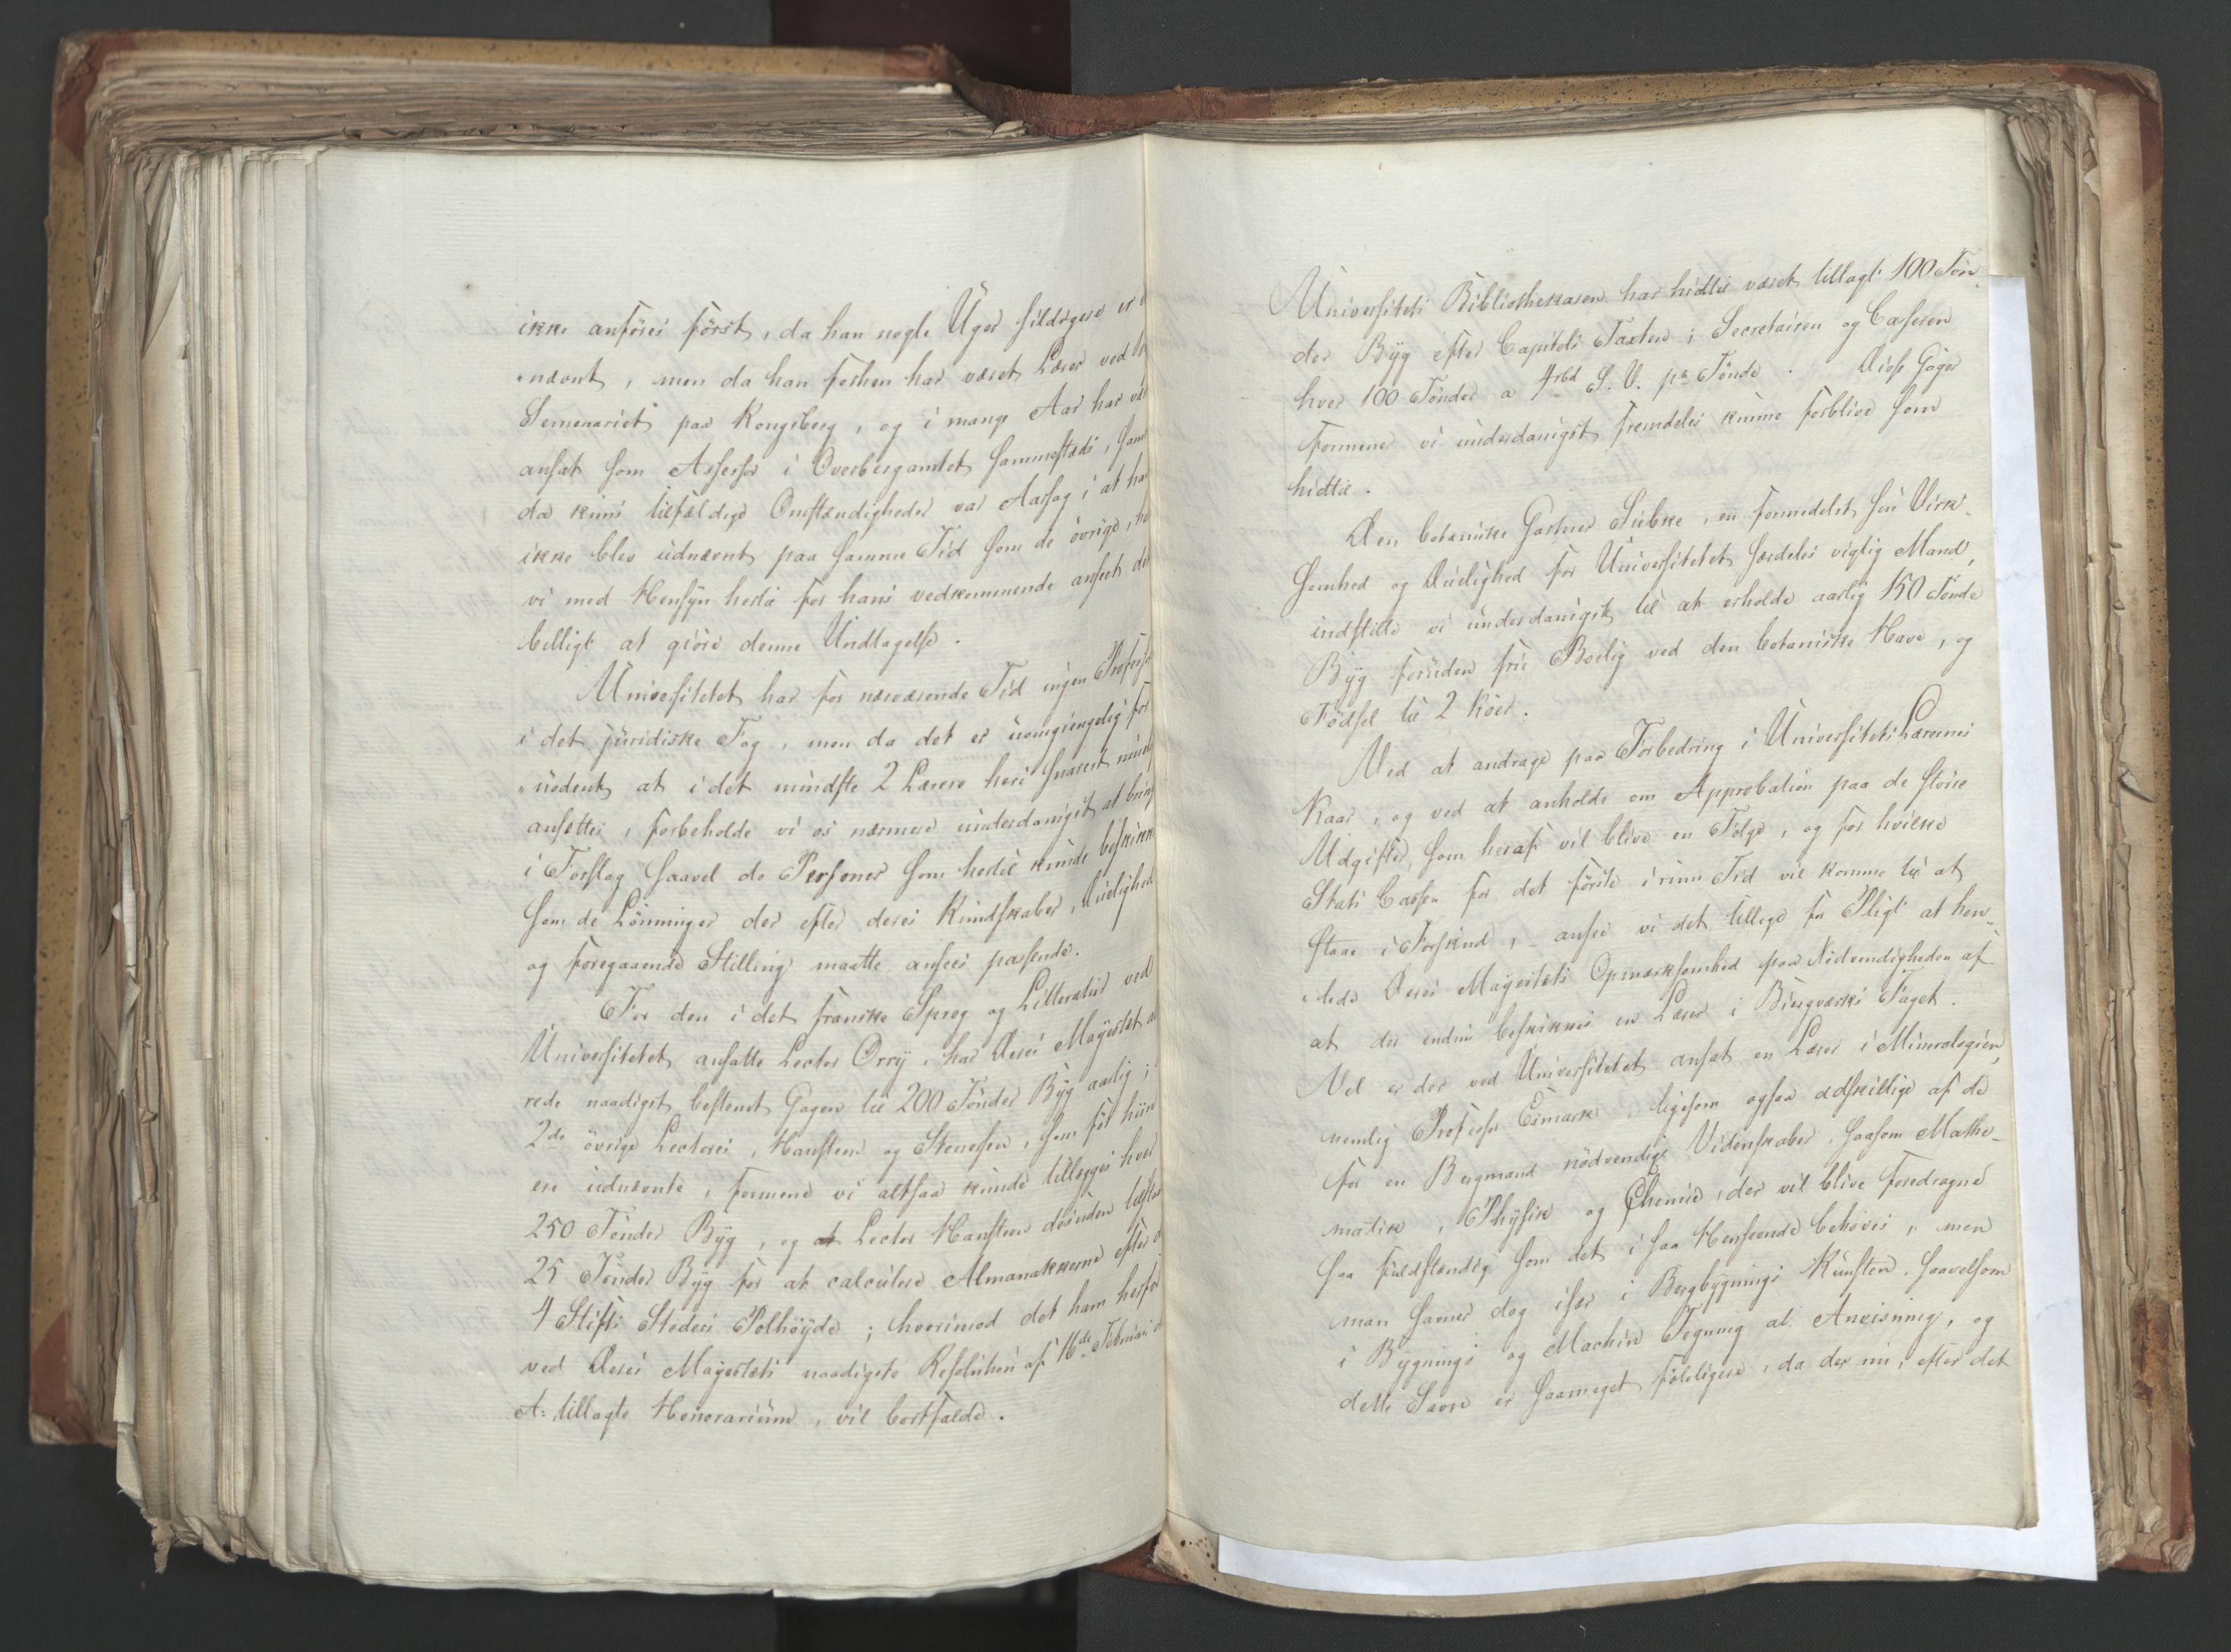 ikke anföres först, da han nogle Uger sildigere er
nævnt, men da han forhen har været Lærer ved
Semenariet paa Kongsberg, og i mange Aar har
ansat som Assessor i Overbergamtet sammesteds, samt
da kuns tilfældige Omstændigheder var Aarsag i at
ikke blev udnævnt paa samme Tid som de övrige,
vi med Hensyn hertil for hans vedkommende anseet det
billigt at giöre denne Undtagelse.
Universitetet har for nærværende Tid ingen
i det juridiske Fag, men da det er uomgiengelig for
nödent at i det mindste 2 Lærere heri snarest
ansættes, forbeholde vi os nærmere underdanigst at
i Forslag saavel de Personer som hertil kunde
som de Lönninger der efter deres Kundskaber, Duelighed
og foregaaende Stilling maatte ansees passende.
For den i det franske Sprog og Litteratur ved
Universitetet ansatte Lector Orry, har Deres Mayestet
rede naadigst bestemt Gagen til 200 Tönder Byg aarlig;
2de övrige Lectores, Hansteen og Stenersen, som för hiin
ere udnævnte, formene vi altsaa kunde tillægges hver
250 Tönder Byg, og at Lector Hansteen desuden
25 Tönder Byg for at calculere Almanakkerne efter
4 Stifts Steders Polhöyde; hvorimod det ham herfor
ved Deres Mayestæts naadigste Resolution af 16de Februari
A: tillagte Honorarium, vil bortfalde.
Universitets Bibliothekaren har hidtil været tillagt 100 Tön-
der Byg efter Capitels Taxten; Secretairen og Casseren
hver 100 Tönder a 4rbd S. V. pr Tönde. Disse Gager
formene vi underdanigst fremdeles kunne forblive som
hidtil.
Den botaniske Gartner Siebke, en formedelst sin Virk-
somhed og Duelighed for Universitetet særdeles vigtig Mand,
indstille vi underdanigst til at erholde aarlig 150 Tönde
Byg foruden frie Boelig ved den botaniske Have, og
Födsel til 2 Köer.
Ved at andrage paa Forbedring i Universitets Lærernes
Kaar, og ved at anholde om Approbation paa de större
Udgifter, som heraf vil blive en Fölge, og for hvilke
Stats Cassen for det förste i ninn Tid vil komme til at
staae i Forskud, ansee vi det tillige for Pligt at hen-
lede Deres Mayestæts Opmærksomhed paa Nödvendigheden af
at der endnu beskikkes en Lærer i Biergværks Faget.
Vel er der ved Universitetet ansat en Lærer i Mineralogien,
nemlig Professor Esmark, ligesom ogsaa adskillige af de
for en Bergmand nödvendige Videnskaber, saasom Mathe-
matik, Physik og Chemie, der vil blive foredragne
saa fuldstændig som det i saa Henseende behöves, men
man savner dog især i Bergbygnings Kunsten, saavelsom
i Bygnings og Machin Tegning al Anvisning, og
dette Savn er saameget föleligere, da der nu, efter det